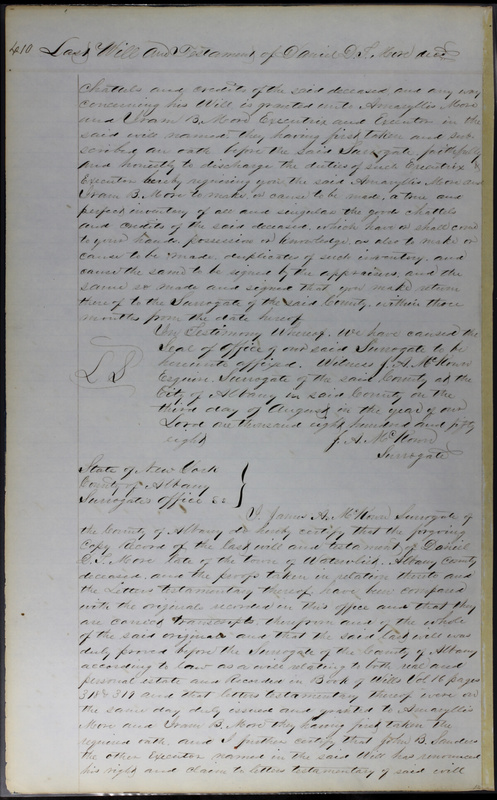 410 Last Will and Testament of Daniel D. T. More decd
chattels and credits of the said deceased, and any way
concerning his Will is granted unto Amaryllis More
and Hiram B. More Executrix and Executor in the
said will named they having first taken and sub-
scribed an oath before the said Surrogate faithfully
and honestly to discharge the duties of such Executrix &
Executor hereby requiring you the said Amaryllis More and
Hiram B. More to make or cause to be made, a true and
perfect inventory of all and singular the goods chattels
and credits of the said deceased, which have or shall come
to your hands possession or knowledge, as also to make or
cause to be made, duplicates of such inventory, and
cause the same to be signed by the appraisers, and the
same so made and signed that you make return
thereof to the Surrogate of the said County, within three
months from the date hereof
In Testimony Whereof, We have caused the
Seal of Office of our said Surrogate to be
hereunto affixed. Witness J. A. McKown
Esquire Surrogate of the said County at the
City of Albany in said County on the
third day of August in the year of our
Lord one thousand eight hundred and fifty
eight J. A. McKown
Surrogate
L S
State of New York
County of Albany
Surrogates Office ss
I, James A. McKown Surrogate of
the County of Albany do hereby certify that the forgoing
Copy Record of the last will and testament of Daniel
D. T. More late of the town of Watervliet, Albany County
deceased, and the proofs taken in relation thereto and
the Letters testamentary thereof have been compared
with the originals recorded in this office and that they
are correct transcripts therefrom and of the whole
of the said originals and that the said last will was
duly proved before the Surrogate of the County of Albany
according to law as a will relating to both real and
personal estate and Recorded in Book of Wills Vol 16 pages
318 & 319 and that letters testamentary thereof were on
the same day duly issued and granted to Amaryllis
More and Hiram B. More they having first taken the
required oath, and I further certify that John B. Sanders
the other Executor named in the said Will has renounced
his right and claim to letters testamentary of said will